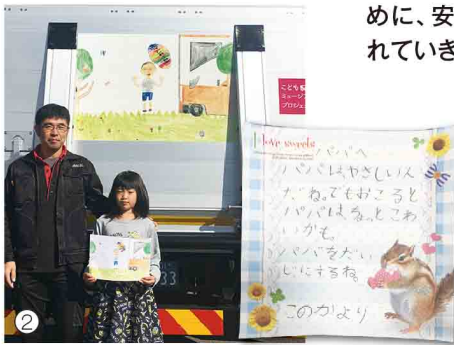 めに、安
れていき
こども
ミュージ
プロジェ
33
②
I love sweets
パパへ
パパはやさしいん
だね。でもおこると
パパは こわ
いかも。
パパをだい
じにするね
このかより